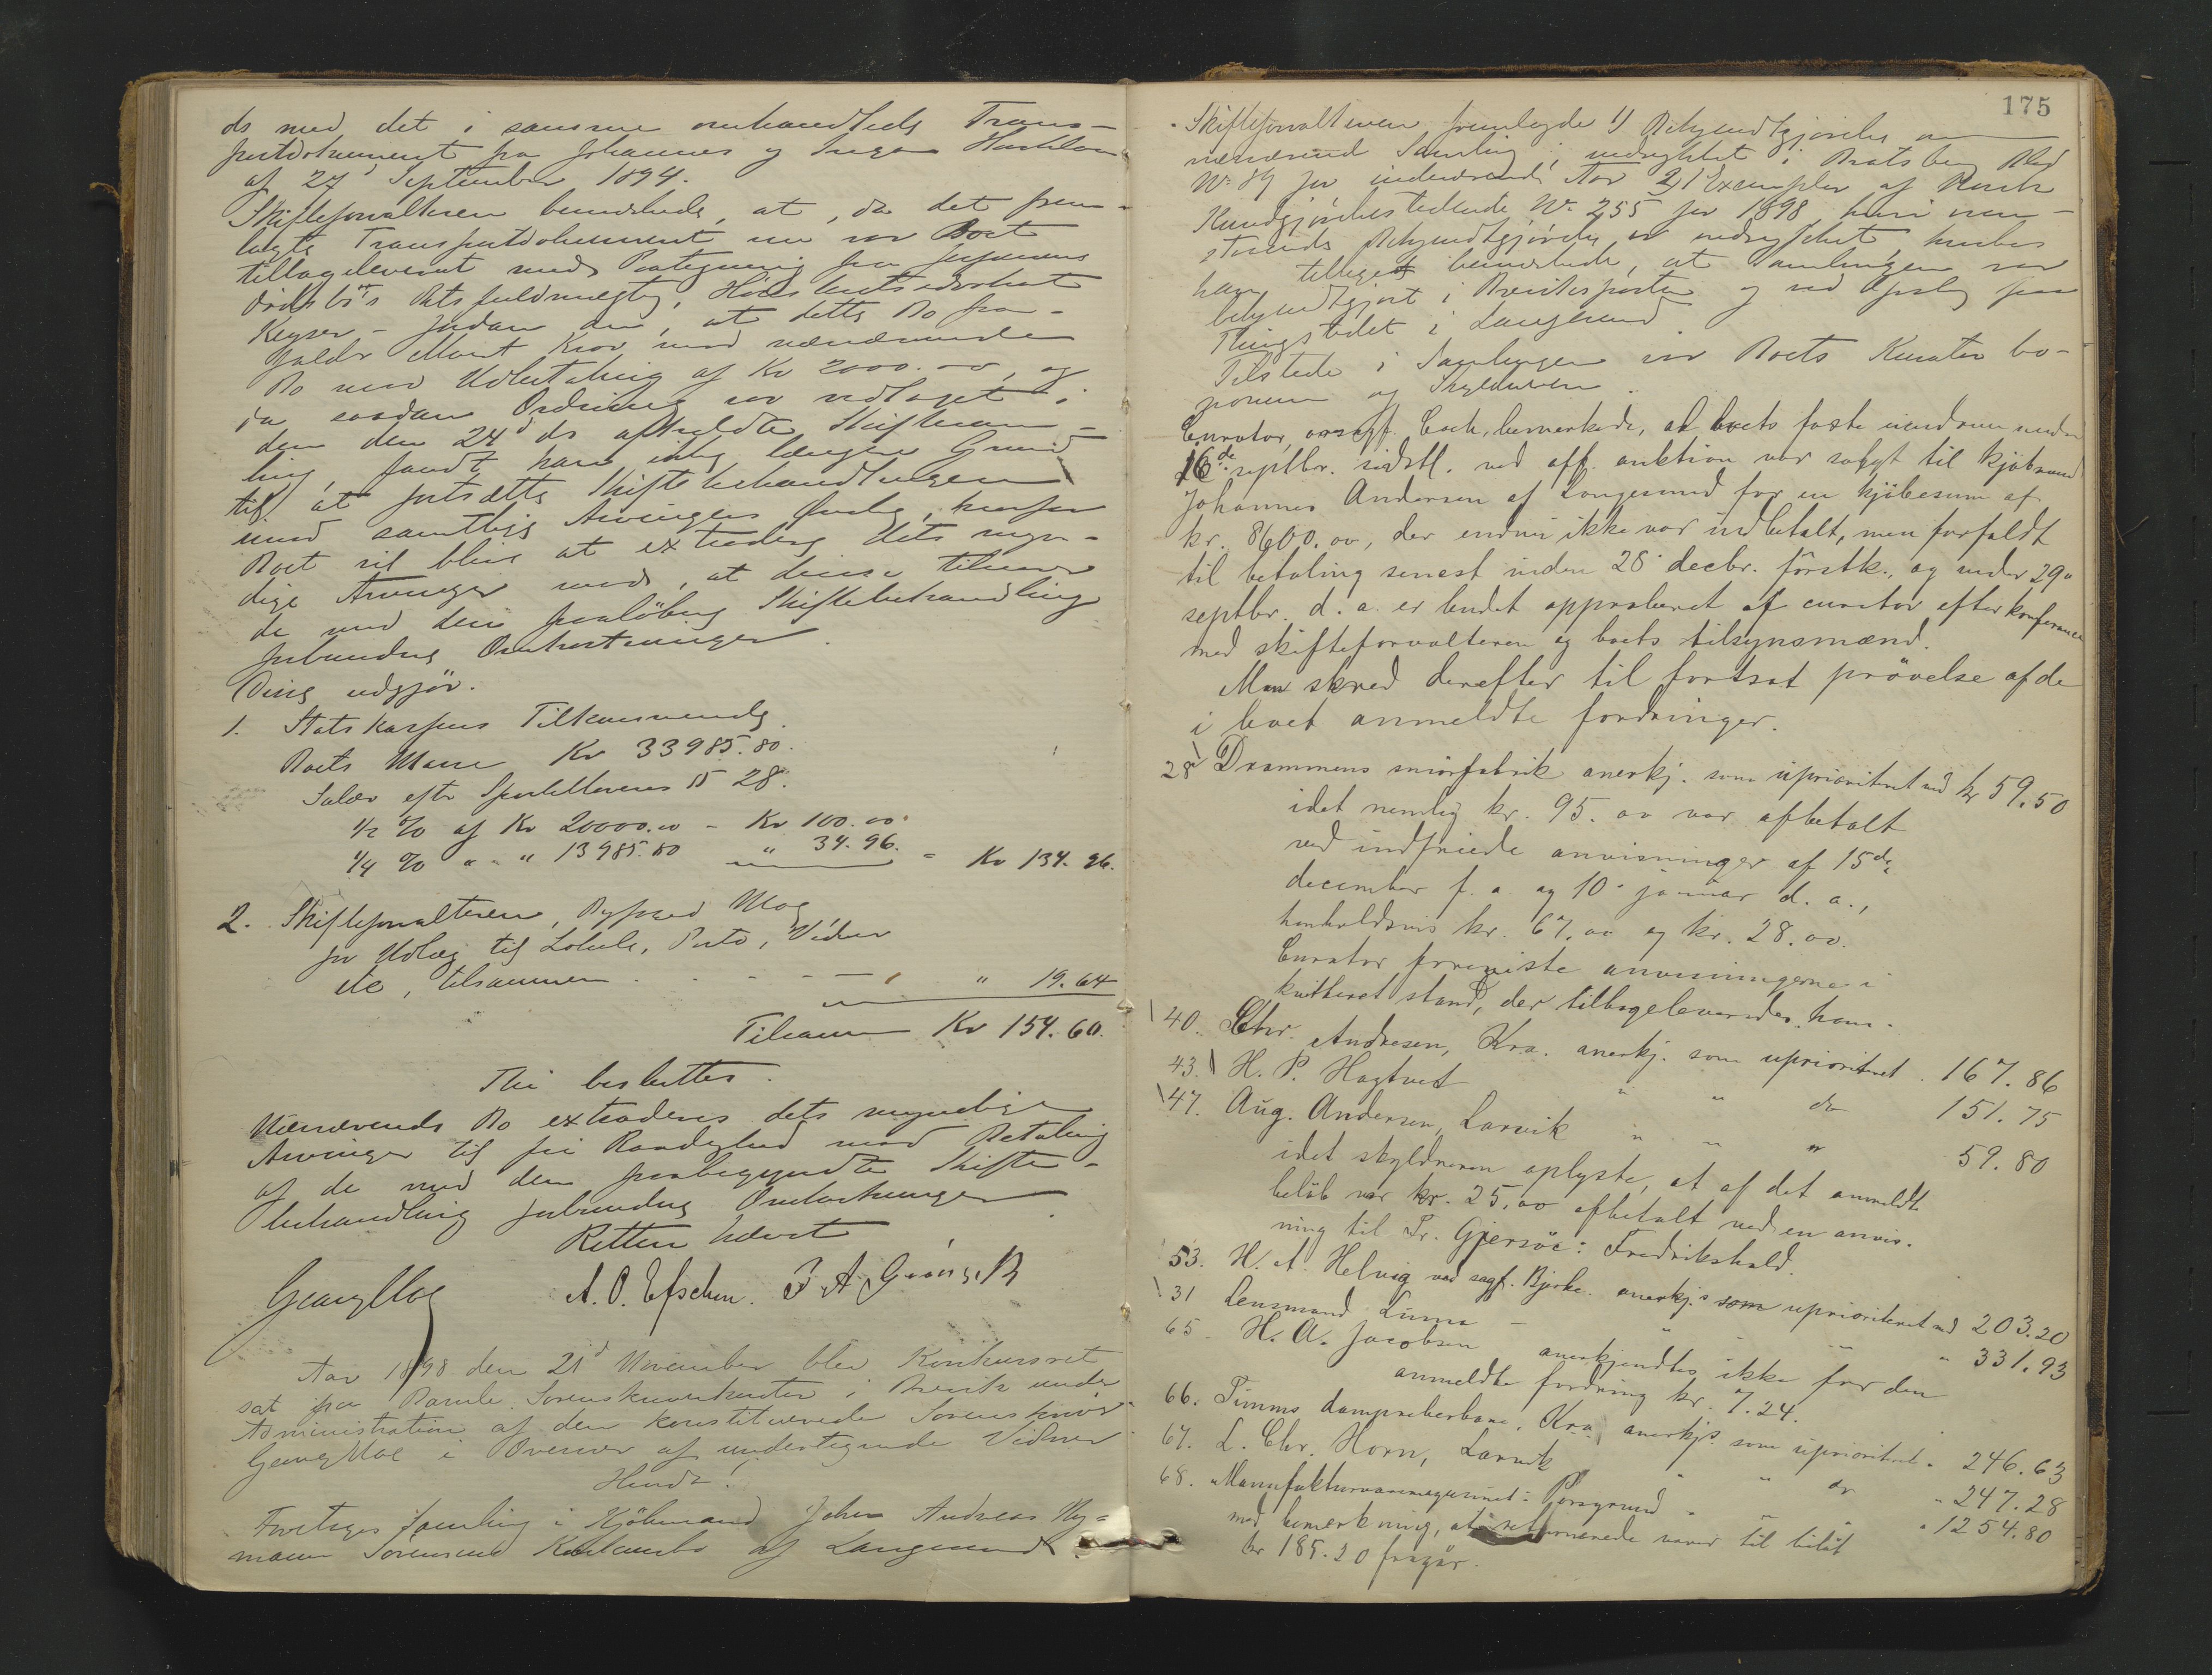 ds med det i samme omhandlede Trans-
portdokument fra Johannes og Inger
af 27 September 1894.
Skifteforvalteren bemerkede, at, da det frem-
lagte Transportdokument nu var Boet
tilbageleveret med Paategning fra
Dødsbo's Retsfuldmægtig, Høiesteretsadvokat
Keyser - Jordan om, at dette Bo fra-
falder ethvert Krav mod nærværende
Bo mod Udbetaling af Kr 2000.00, og
da saadan Ordning var vedtaget i
den den 24d ds afholdte Skiftesam-
ling, fandt han ikke længere Grund
til at fortsætte Skiftebehandlingen
mod samtlige Arvingers Ønske, hvorfor
Boet vil blive at extradere dets myn-
dige Arvinger mod, at disse tilsvarer
de med den foreløbige Skiftebehandling
forbundne Omkostninger.
Disse udgjør.
1. Statskassens Tilkommende.
Boets Masse Kr 33985.80.
Salær efter Sportelloven § 28.
1/2 % af Kr 20000.00 - Kr 100.00
1/4 % " - " 13985.80 " 34.96. = Kr 134.96.
2. Skifteforvalteren, Byfoged Moe
for Udlæg til Lokale, Porto, Vidner
etc, tilsammen - - - - - " 19.64
Tilsammen Kr 154.60.
Thi besluttes.
Nærværende Bo extraderes dets myndige
Arvinger til fri Raadighed mod Betaling
af de med den paabegyndte Skifte-
behandling forbundne Omkostninger.
Retten hævet
Georg Moe A. O. Efschen.
Aar 1898 den 21d November blev Konkursret
sat paa Bamle Sorenskriverkontor i Brevik under
Administration af den konstituerede Sorenskriver
Georg Moe i Overvær af undertegnede Vidner
Hvorda!
Foretages Samling i Kjøbmand Johan Andreas Ny-
mann Sørensens Konkursbo af Langesund
175
Skifteforvalteren fremlagde 1) Bekjendtgjørelse om
nærværende Samling, indrykket i Bratsberg Blad
No 89 for indeværende Aar 2) 1 Exemplar af Norsk
Kundgjørelsestidende No 255 for 1898 hvori oven-
staaende Bekjendtgjørelse er indrykket, hvorhos
han tillige bemærkede, at Samlingen var
bekjendtgjort i Breviksposten og ved Opslag paa
Thingstedet i Langesund.
Tilstede i Samlingen var Boets Kurator bo-
norum og Skyldneren.
Curator, oversagf. Coch, bemerkede, at boets faste eiendom under
16de septbr. sidstl. ved off. auktion var solgt til kjøbmand
Johannes Andersen af Langesund for en kjøbesum af
kr. 8600.00, der endnu ikke var indbetalt, men forfaldt
til betaling senest inden 28. decbr. førstk., og under 29.
septbr. d. a. er budet approberet af curator efter konference
med skifteforvalteren og boets tilsynsmænd.
Man skred derefter til fortsat prøvelse af de
i boet anmeldte fordringer.
28 Drammens smørfabrik anerkj. som uprioriteret med kr 59.50
idet nemlig kr. 95.00 var afbetalt
ved indfriede anvisninger af 15de
december f. a. og 10. januar d. a.,
henholdsvis kr. 67.00 og kr. 28.00.
Curator foreviste anvisningerne i
kvitteret stand, der tilbageleveredes ham.
40. Chr. Andresen, Kra. anerkj. som uprioriteret. 167.86
43. H. P. Hagtvet " " do 151.75
47. Aug. Andersen, Larvik " " " 59.80
idet skyldneren oplyste, at af det anmeldte
beløb var kr. 25.00 afbetalt ved en anvis-
ning til Fr. Gjersøe: Fredrikshald.
53. H. A. Helvig ved sagf. Bjerke. anerkj.s som uprioriteret med 203.20
31 Lensmand Linna - " " " 331.93
65 H. A. Jacobsen anerkjendtes ikke for den
anmeldte fordring kr. 7.24.
66. Timms dampreberbane, Kra. anerkjs som uprioriteret " 246.63
67. L. Chr. Horn, Larvik " " do " 247.28
68. Manufakturvaremagasinet: Porsgrund - " " " 1254.80
med bemerkning, at returnerede varer til beløb
kr 185.20 fragår.